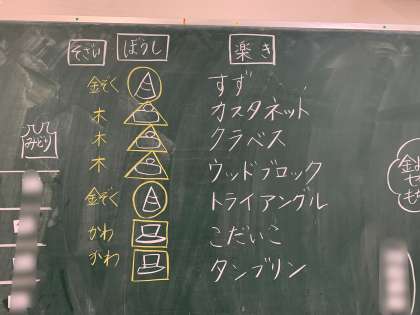 そざい ぼうし 楽き
金ぞく すず
木 カスタネット
木 クラベス
木 ウッドブロック
金ぞく トライアングル
かわ こだいこ
かわ タンブリン
みどり